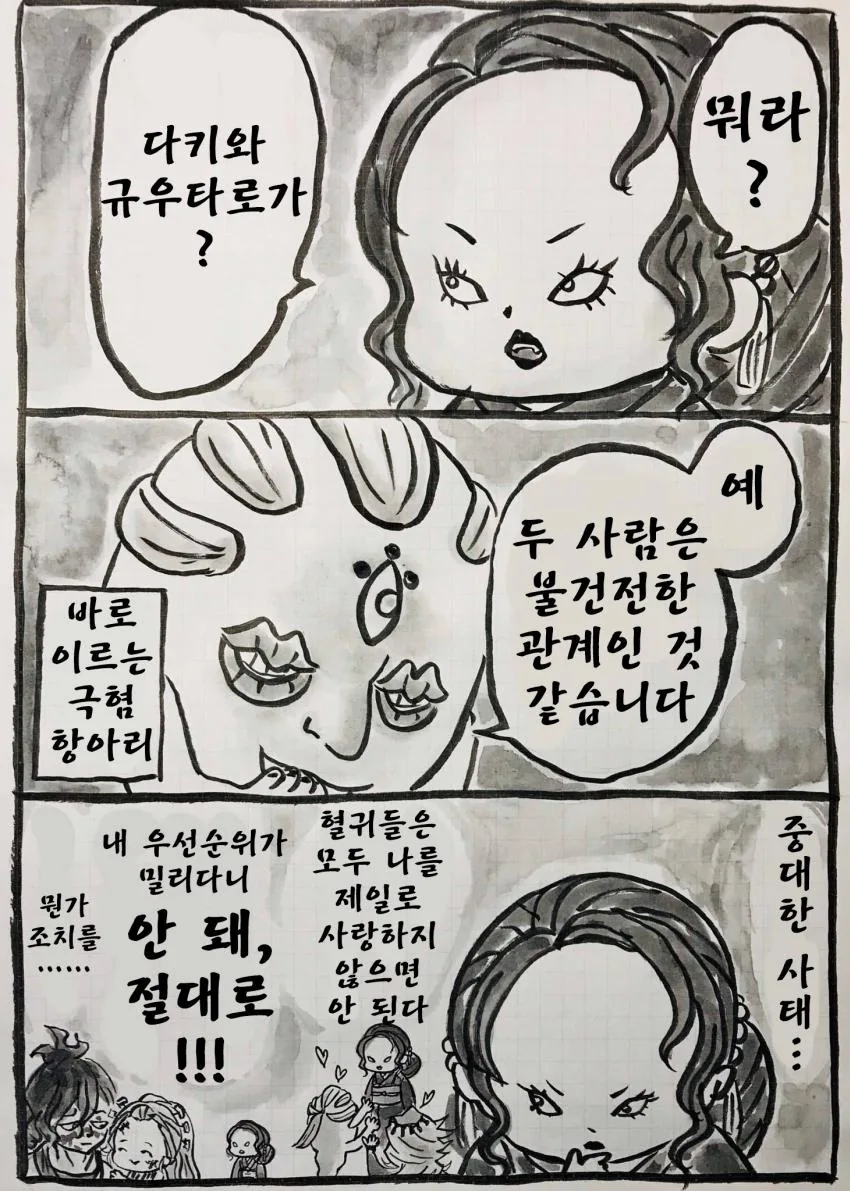 뭐라
?
다키와
규우타로가
?
예
두 사람은
불건전한
관계인 것
같습니다
바로
이르는
극혐
항아리
중대한 사태…
혈귀들은
모두 나를
제일로
사랑하지
않으면
안 된다
내 우선순위가
밀리다니
안 돼,
절대로
!!!
뭔가
조치를
……